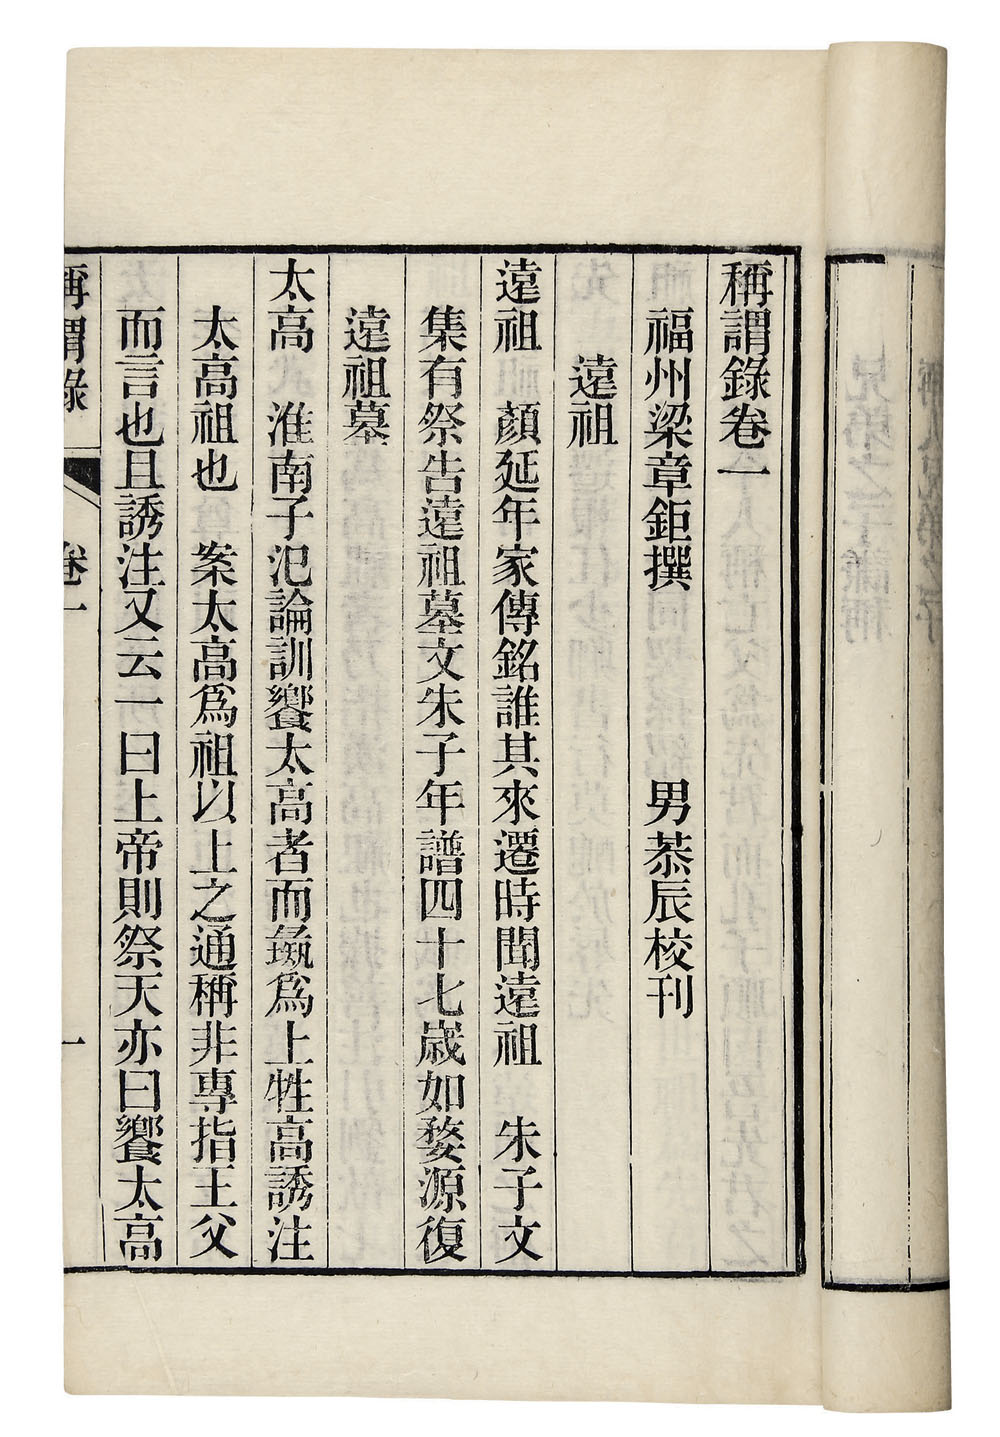 稱謂錄卷一
福州梁章鉅撰　男恭辰校刊
遠祖
遠祖　顏延年家傳銘誰其來遷時聞遠祖　朱子文
集有祭告遠祖墓文朱子年譜四十七歲如婺源復
遠祖墓
太高　淮南子氾論訓饗太高者而彘爲上牲高誘注
太高祖也　案太高爲祖以上之通稱非專指王父
而言也且誘注又云一曰上帝則祭天亦曰饗太高
稱謂錄　卷一　一